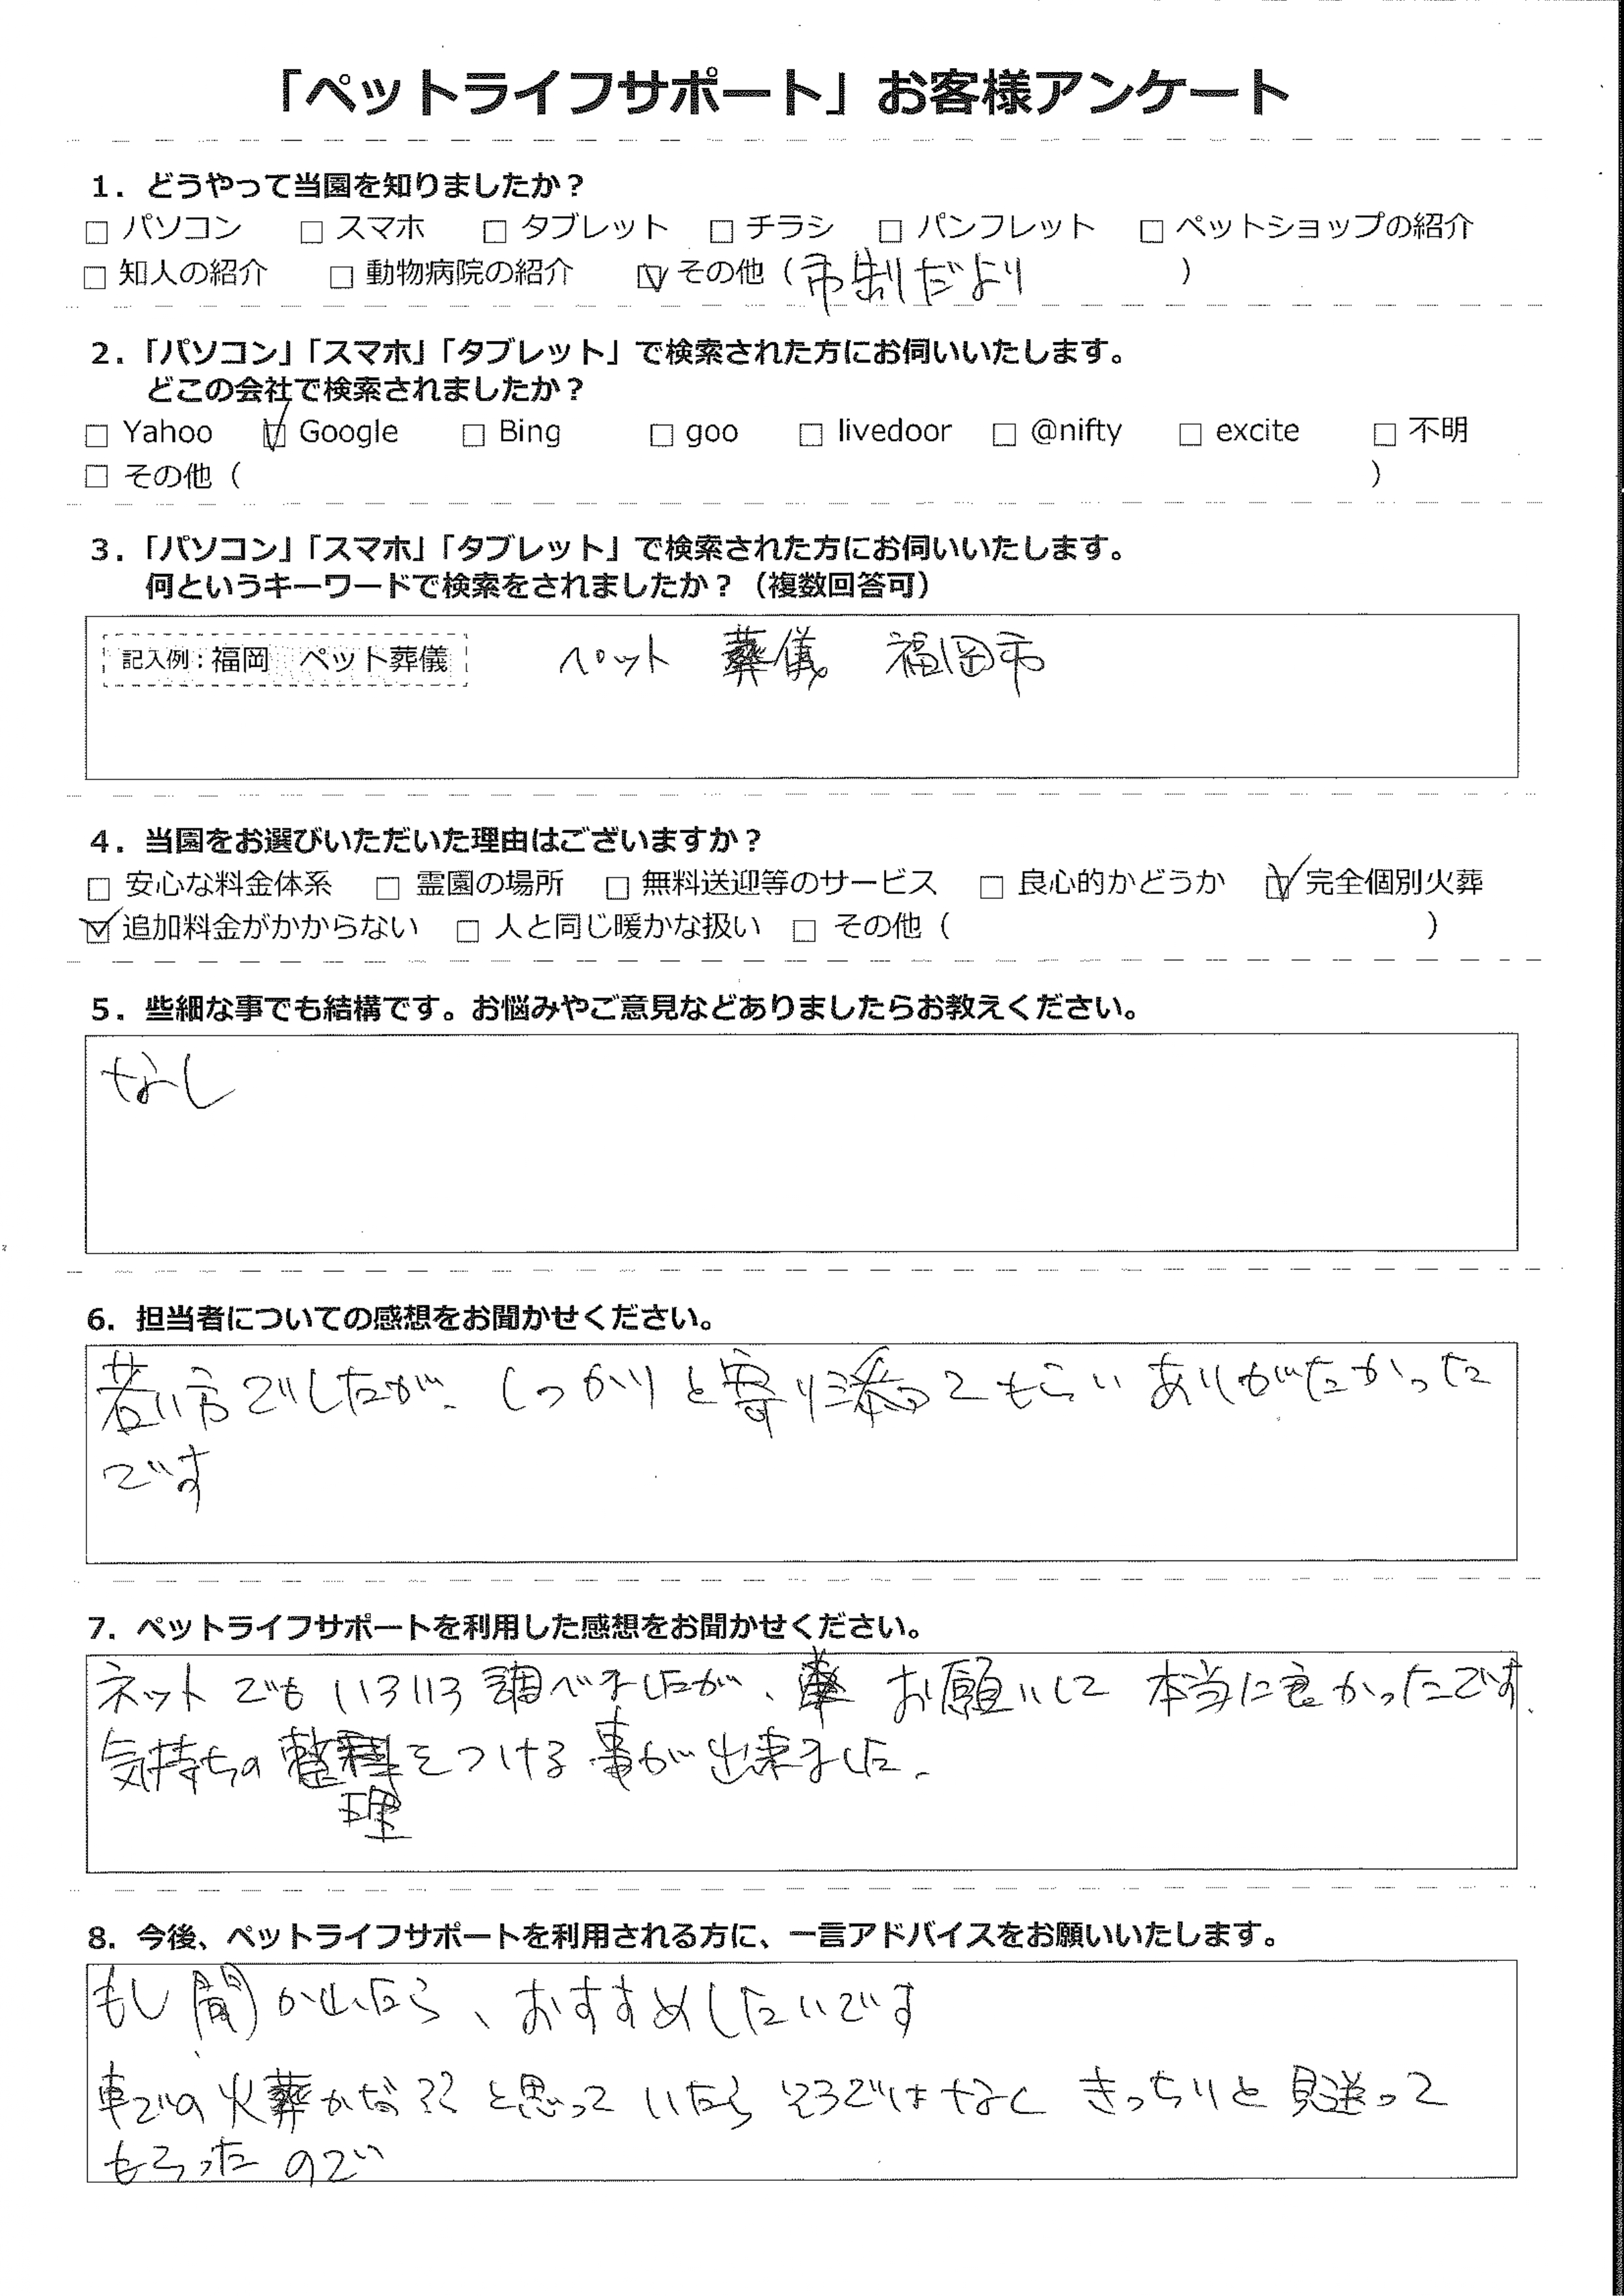 「ペットライフサポート」お客様アンケート
1．どうやって当園を知りましたか？
□ パソコン □ スマホ □ タブレット □ チラシ □ パンフレット □ ペットショップの紹介
□ 知人の紹介 □ 動物病院の紹介 ☑ その他（市制だより）
2．「パソコン」「スマホ」「タブレット」で検索された方にお伺いいたします。
どこの会社で検索されましたか？
□ Yahoo ☑ Google □ Bing □ goo □ livedoor □ @nifty □ excite □ 不明
□ その他（ ）
3．「パソコン」「スマホ」「タブレット」で検索された方にお伺いいたします。
何というキーワードで検索をされましたか？（複数回答可）
記入例：福岡 ペット葬儀 ペット 葬儀 福岡市
4．当園をお選びいただいた理由はございますか？
□ 安心な料金体系 □ 霊園の場所 □ 無料送迎等のサービス □ 良心的かどうか ☑ 完全個別火葬
☑ 追加料金がかからない □ 人と同じ暖かな扱い □ その他（ ）
5．些細な事でも結構です。お悩みやご意見などありましたらお教えください。
なし
6．担当者についての感想をお聞かせください。
若い方でしたが、しっかりと寄り添ってもらいありがたかった
です
7．ペットライフサポートを利用した感想をお聞かせください。
ネットでもいろいろ調べましたが、お願いして本当に良かったです、
気持ちの整をつける事が出来ました。
理
8．今後、ペットライフサポートを利用される方に、一言アドバイスをお願いいたします。
もし聞かれたら、おすすめしたいです
車での火葬かな？？と思っていたらそうではなくきっちりと見送って
もらったので